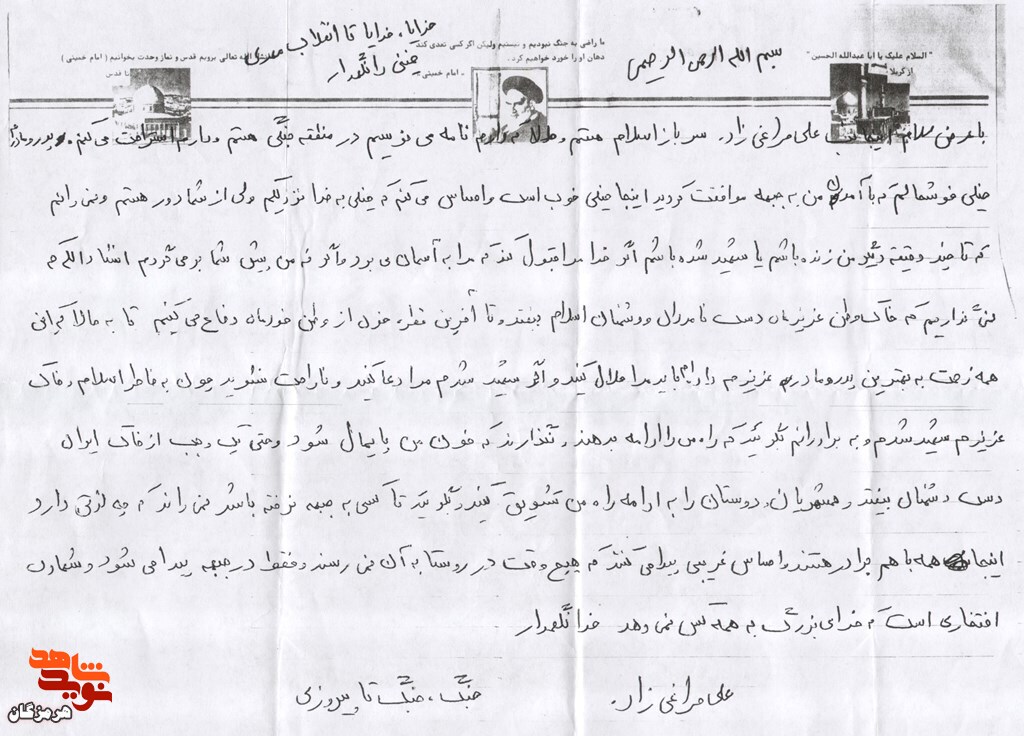 خدایا، خدایا تا انقلاب مهدی
خمینی را نگهدار
بسم الله الرحمن الرحیم
"السلام علیک یا ابا عبدالله الحسین"
از کربلا
ما راضی به جنگ نبودیم و نیستیم ولیکن اگر کسی تعدی کند
دهان او را خورد خواهیم کرد.
امام خمینی
الله تعالی برویم قدس و نماز وحدت بخوانیم (امام خمینی)
تا قدس
با عرض سلام اینجانب علی مراغی زاده سرباز اسلام هستم و حالا که دارم نامه می نویسیم در منطقه جنگی هستم و دارم استراحت می کنم. پدر و مادر
خیلی خوشحالم که با آمدن من به جبهه موافقت کردید اینجا خیلی خوب است و احساس می کنم که خیلی به خدا نزدیکم ولی از شما دور هستم و نمی دانم
که تا چند دقیقه دیگر من زنده باشم یا شهید شده باشم اگر خدا مرا قبول کند که مرا به آسمان می برد و اگر نه من پیش شما برمی گردم انشاءالله که
نمی گذاریم که خاک وطن عزیزمان دست نامردان و دشمنان اسلام بیفتد و تا آخرین قطره خون از وطن خودمان دفاع می کنیم تا به حالا که برای
همه زحمت به بهترین پدر و مادر عزیزم دادم باید مرا حلال کنید و اگر شهید شدم مرا دعا کنند و ناراحت نشوید چون به خاطر اسلام و خاک
عزیزم شهید شدم و به برادرانم بگوئید که راه من را ادامه بدهند و نگذارند که خون من پایمال شود و حتی یک وجب از خاک ایران
دست دشمنان بیفتد و همشهریان و دوستان را به ادامه راه من تشویق کنید و بگوئید تا کسی به جبهه نرفته باشد نمی داند که چه لذتی دارد
اینجا همه با هم برادر هستند و احساس غریبی پیدا می کنند که هیچ وقت در روستا به آن نمی رسند و فقط در جبهه پیدا می شود و شهادت
افتخاری است که خدای بزرگ به همه کس نمی دهد خدا نگهدار
علی مراغی زاده
جنگ، جنگ تا پیروزی
نوید شاهد
هرمزگان